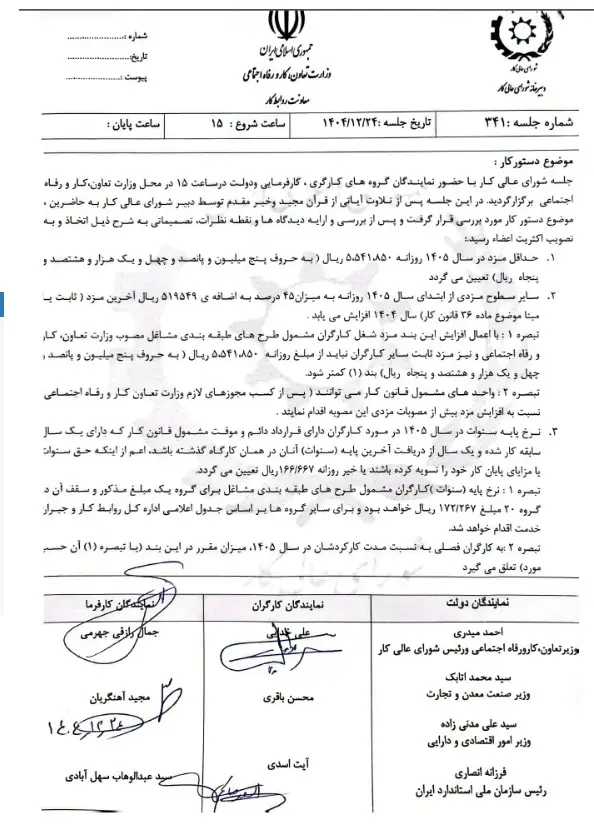 شماره :........................
تاریخ:........................
پیوست :........................
جمهوری اسلامی ایران
وزارت تعاون، کار و رفاه اجتماعی
معاونت روابط کار
شورای عالی کار
دبیرخانه شورای عالی کار
شماره جلسه :۳۴۱
تاریخ جلسه :۱۴۰۴/۱۲/۲۴
ساعت شروع : ۱۵
ساعت پایان :
موضوع دستورکار :
جلسه شورای عالی کار با حضور نمایندگان گروه های کارگری ، کارفرمایی ودولت درساعت ۱۵ در محل وزارت تعاون،کار و رفاه
اجتماعی برگزارگردید. در این جلسه پس از تلاوت آیاتی از قرآن مجید وخیر مقدم توسط دبیر شورای عالی کار به حاضرین ،
موضوع دستور کار مورد بررسی قرار گرفت و پس از بررسی و ارایه دیدگاه ها و نقطه نظرات، تصمیماتی به شرح ذیل اتخاذ و به
تصویب اکثریت اعضاء رسید:
۱. حداقل مزد در سال ۱۴۰۵ روزانه ۵،۵۴۱،۸۵۰ ریال ( به حروف پنج میلیون و پانصد و چهل و یک هزار و هشتصد و
پنجاه ریال) تعیین می گردد
۲. سایر سطوح مزدی از ابتدای سال ۱۴۰۵ روزانه به میزان۴۵ درصد به اضافه ی ۵۱۹۵۴۹ ریال آخرین مزد ( ثابت یا
مبنا موضوع ماده ۳۶ قانون کار) سال ۱۴۰۴ افزایش می یابد .
تبصره ۱ : با اعمال افزایش این بند مزد شغل کارگران مشمول طرح های طبقه بندی مشاغل مصوب وزارت تعاون، کار
و رفاه اجتماعی و نیز مزد ثابت سایر کارگران نباید از مبلغ روزانه ۵،۵۴۱،۸۵۰ ریال ( به حروف پنج میلیون و پانصد و
چهل و یک هزار و هشتصد و پنجاه ریال) بند (۱) کمتر شود.
تبصره ۲ : واحد های مشمول قانون کار می توانند ( پس از کسب مجوزهای لازم وزارت تعاون کار و رفاه اجتماعی)
نسبت به افزایش مزد بیش از مصوبات مزدی این مصوبه اقدام نمایند .
۳. نرخ پایه سنوات در سال ۱۴۰۵ در مورد کارگران دارای قرارداد دائم و موقت مشمول قانون کار که دارای یک سال
سابقه کار شده و یک سال از دریافت آخرین پایه (سنوات) آنان در همان کارگاه گذشته باشد، اعم از اینکه حق سنوات
یا مزایای پایان کار خود را تسویه کرده باشند یا خیر روزانه ۱۶۶/۶۶۷ریال تعیین می گردد.
تبصره ۱ : نرخ پایه (سنوات )کارگران مشمول طرح های طبقه بندی مشاغل برای گروه یک مبلغ مذکور و سقف آن د
گروه ۲۰ مبلغ ۱۷۲/۲۶۷ ریال خواهد بود و برای سایر گروه ها بر اساس جدول اعلامی اداره کل روابط کار و جبران
خدمت اقدام خواهد شد.
تبصره ۲ :به کارگران فصلی به نسبت مدت کارکردشان در سال ۱۴۰۵، میزان مقرر در این بند (یا تبصره (۱) آن حسب
مورد) تعلق می گیرد
نمایندگان دولت
نمایندگان کارگران
نمایندگان کارفرما
احمد میدری
وزیرتعاون،کارورفاه اجتماعی ورئیس شورای عالی کار
علی خدایی
جمال رازقی جهرمی
سید محمد اتابک
وزیر صنعت معدن و تجارت
محسن باقری
مجید آهنگریان
۱۴۰۴/۱۲/۲۴
سید علی مدنی زاده
وزیر امور اقتصادی و دارایی
فرزانه انصاری
رئیس سازمان ملی استاندارد ایران
آیت اسدی
سید عبدالوهاب سهل آبادی